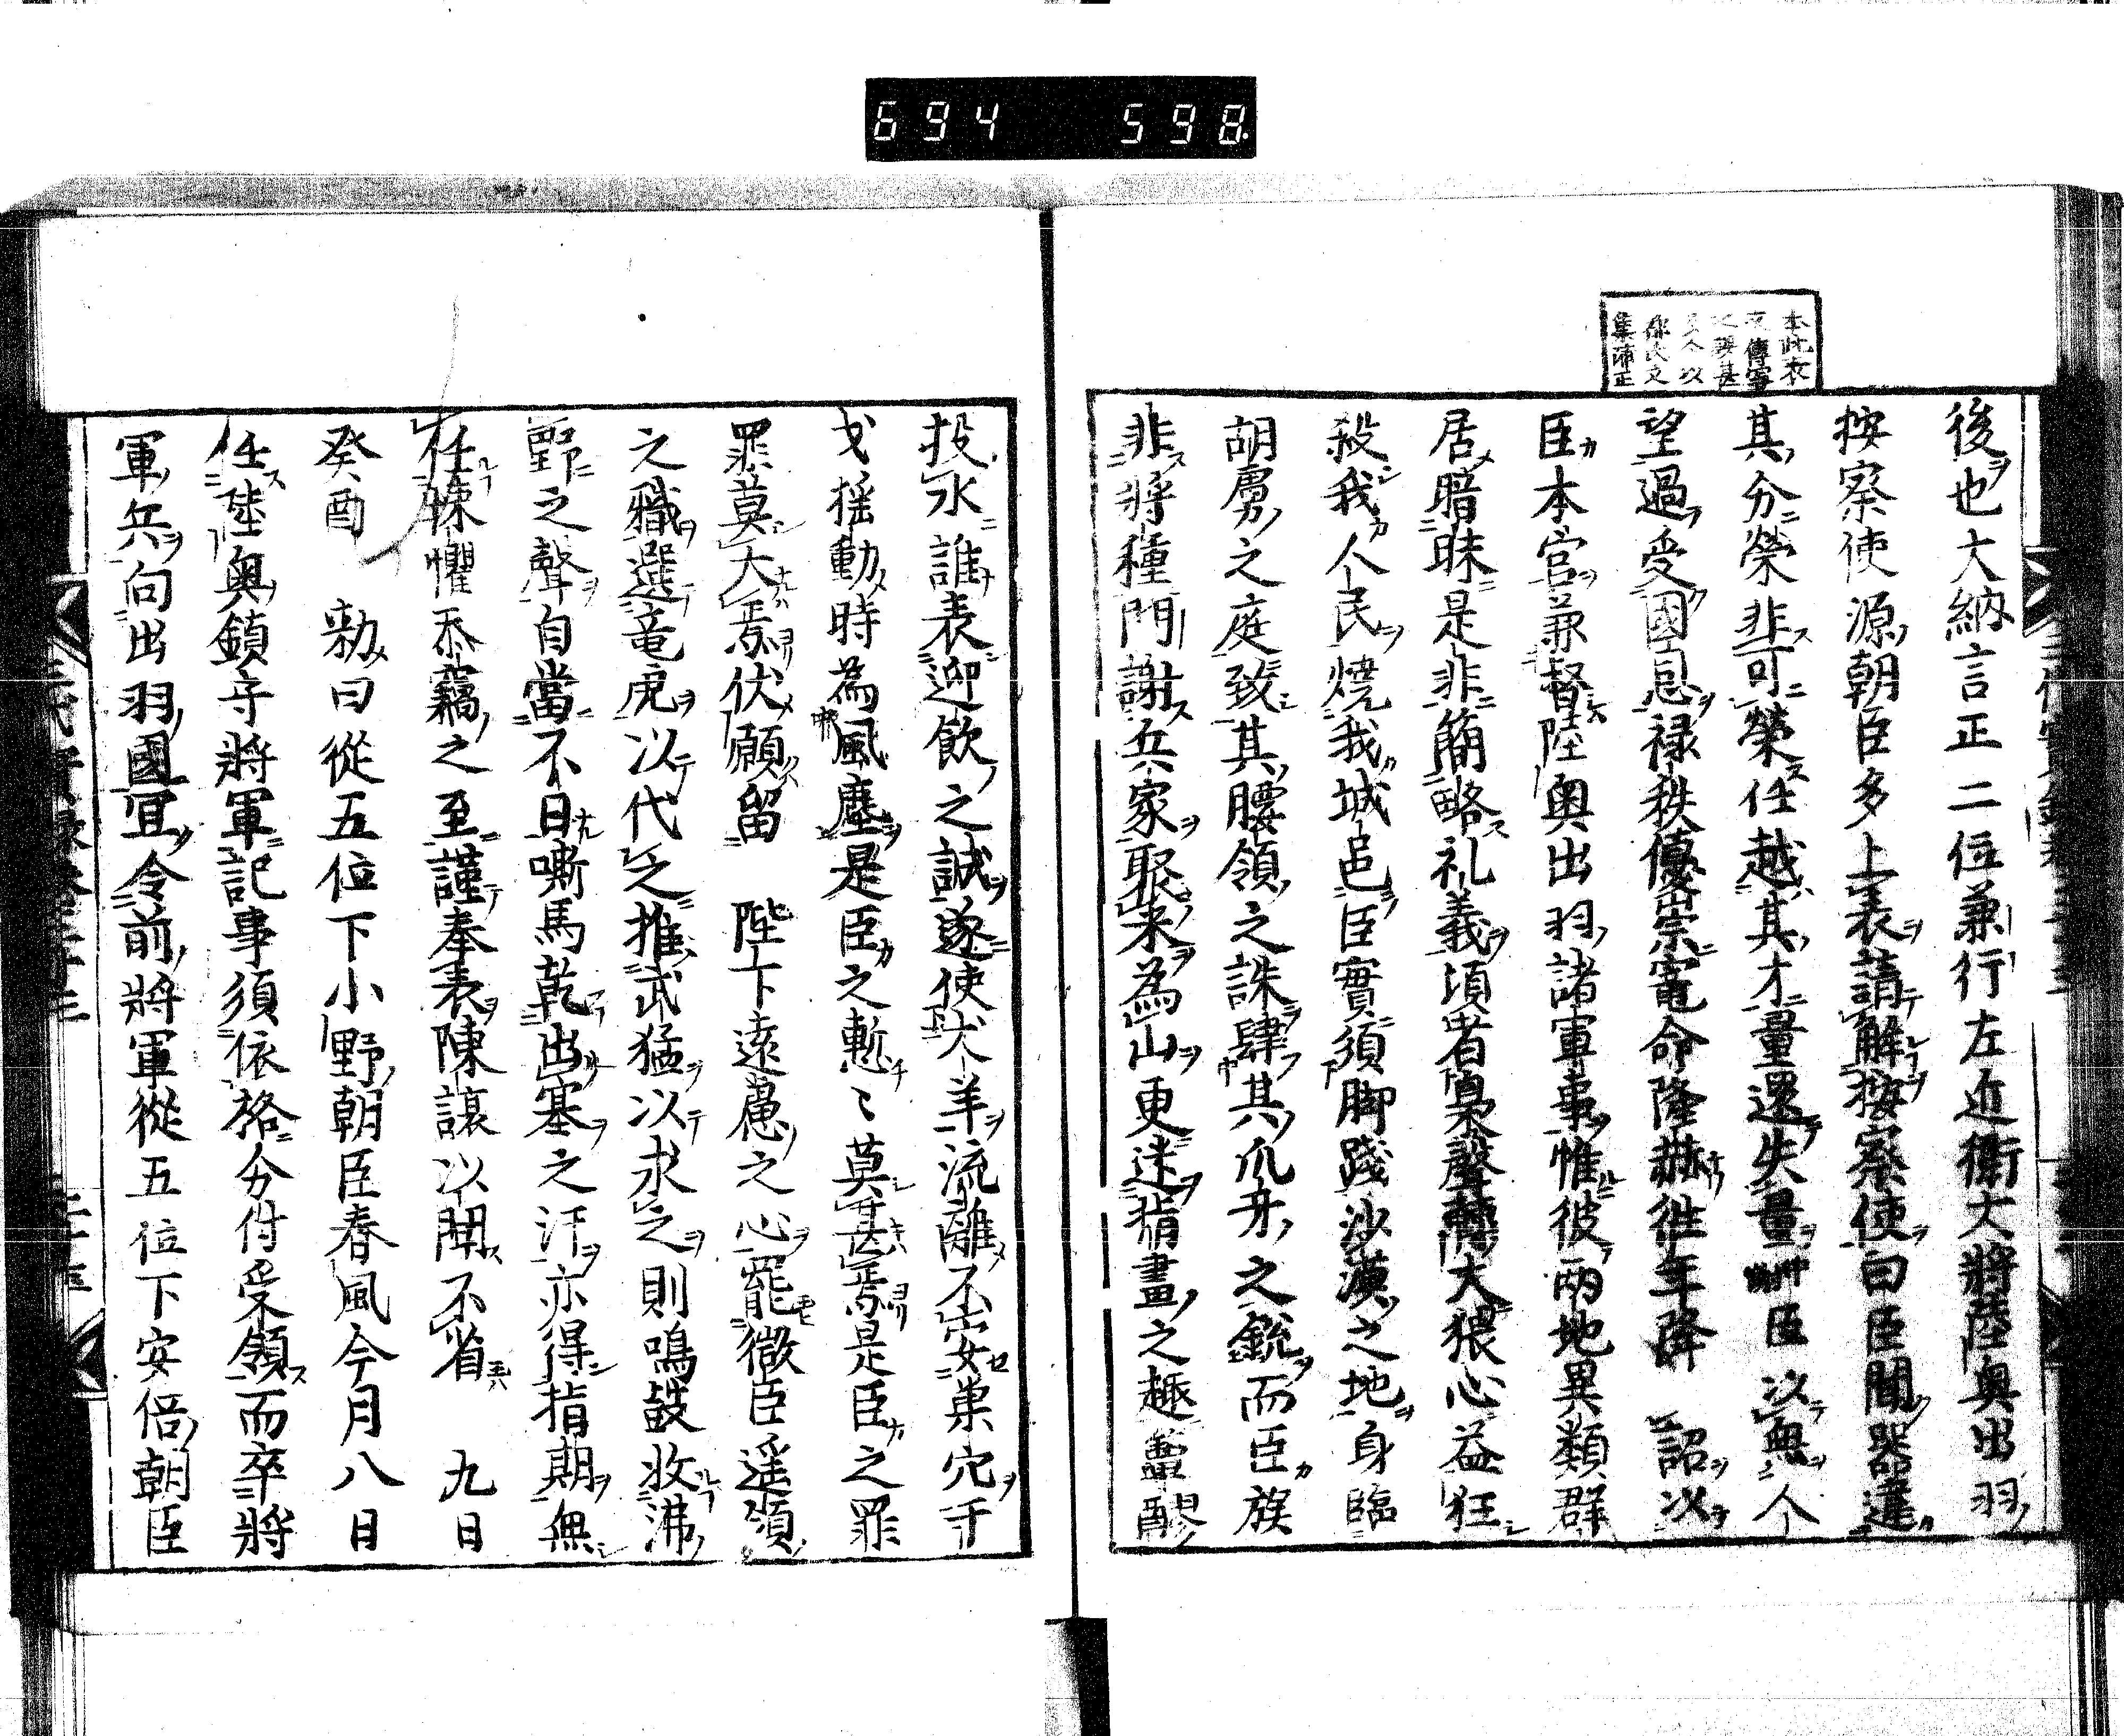 694 598
本此表
文傳寫
之誤甚
多今以
都氏文
集沛正
後也大納言正二位兼行左近衛大將陸奥出羽
按察使源朝臣多上表請解按察使曰臣聞器違
其分榮非可榮任越其才量還失量臣以無人
望過受國恩禄秩優崇寵命隆赫往年降 詔以
臣本官兼督陸奥出羽諸軍事惟彼兩地異類群
居暗昧是非簡略礼義頃者梟聲轉大猥心益狂
殺我人民燒我城邑臣實須脚踐沙漠之地身臨
胡虜之庭致其腰領之誅肆其爪牙之銳而臣族
非將種門謝兵家聚米為山更迷指畫之趣簞醪
投水誰表迎飲之誠遂使犬羊流離不安巢穴干
戈揺動時為風塵是臣之慙〻莫甚焉是臣之罪
罪莫大焉伏願留 陛下遠慮之心罷微臣遥領
之職選竜虎以代之推武猛以求之則鳴鼓收沸
野之聲自當不日嘶馬乾出塞之汗亦得指期無
任悚懼忝竊之至謹奉表陳讓以聞不省 九日
癸酉 勑曰從五位下小野朝臣春風今月八日
任陸奥鎮守將軍記事須依格分付受領而卒將
軍兵向出羽國宜令前將軍從五位下安倍朝臣